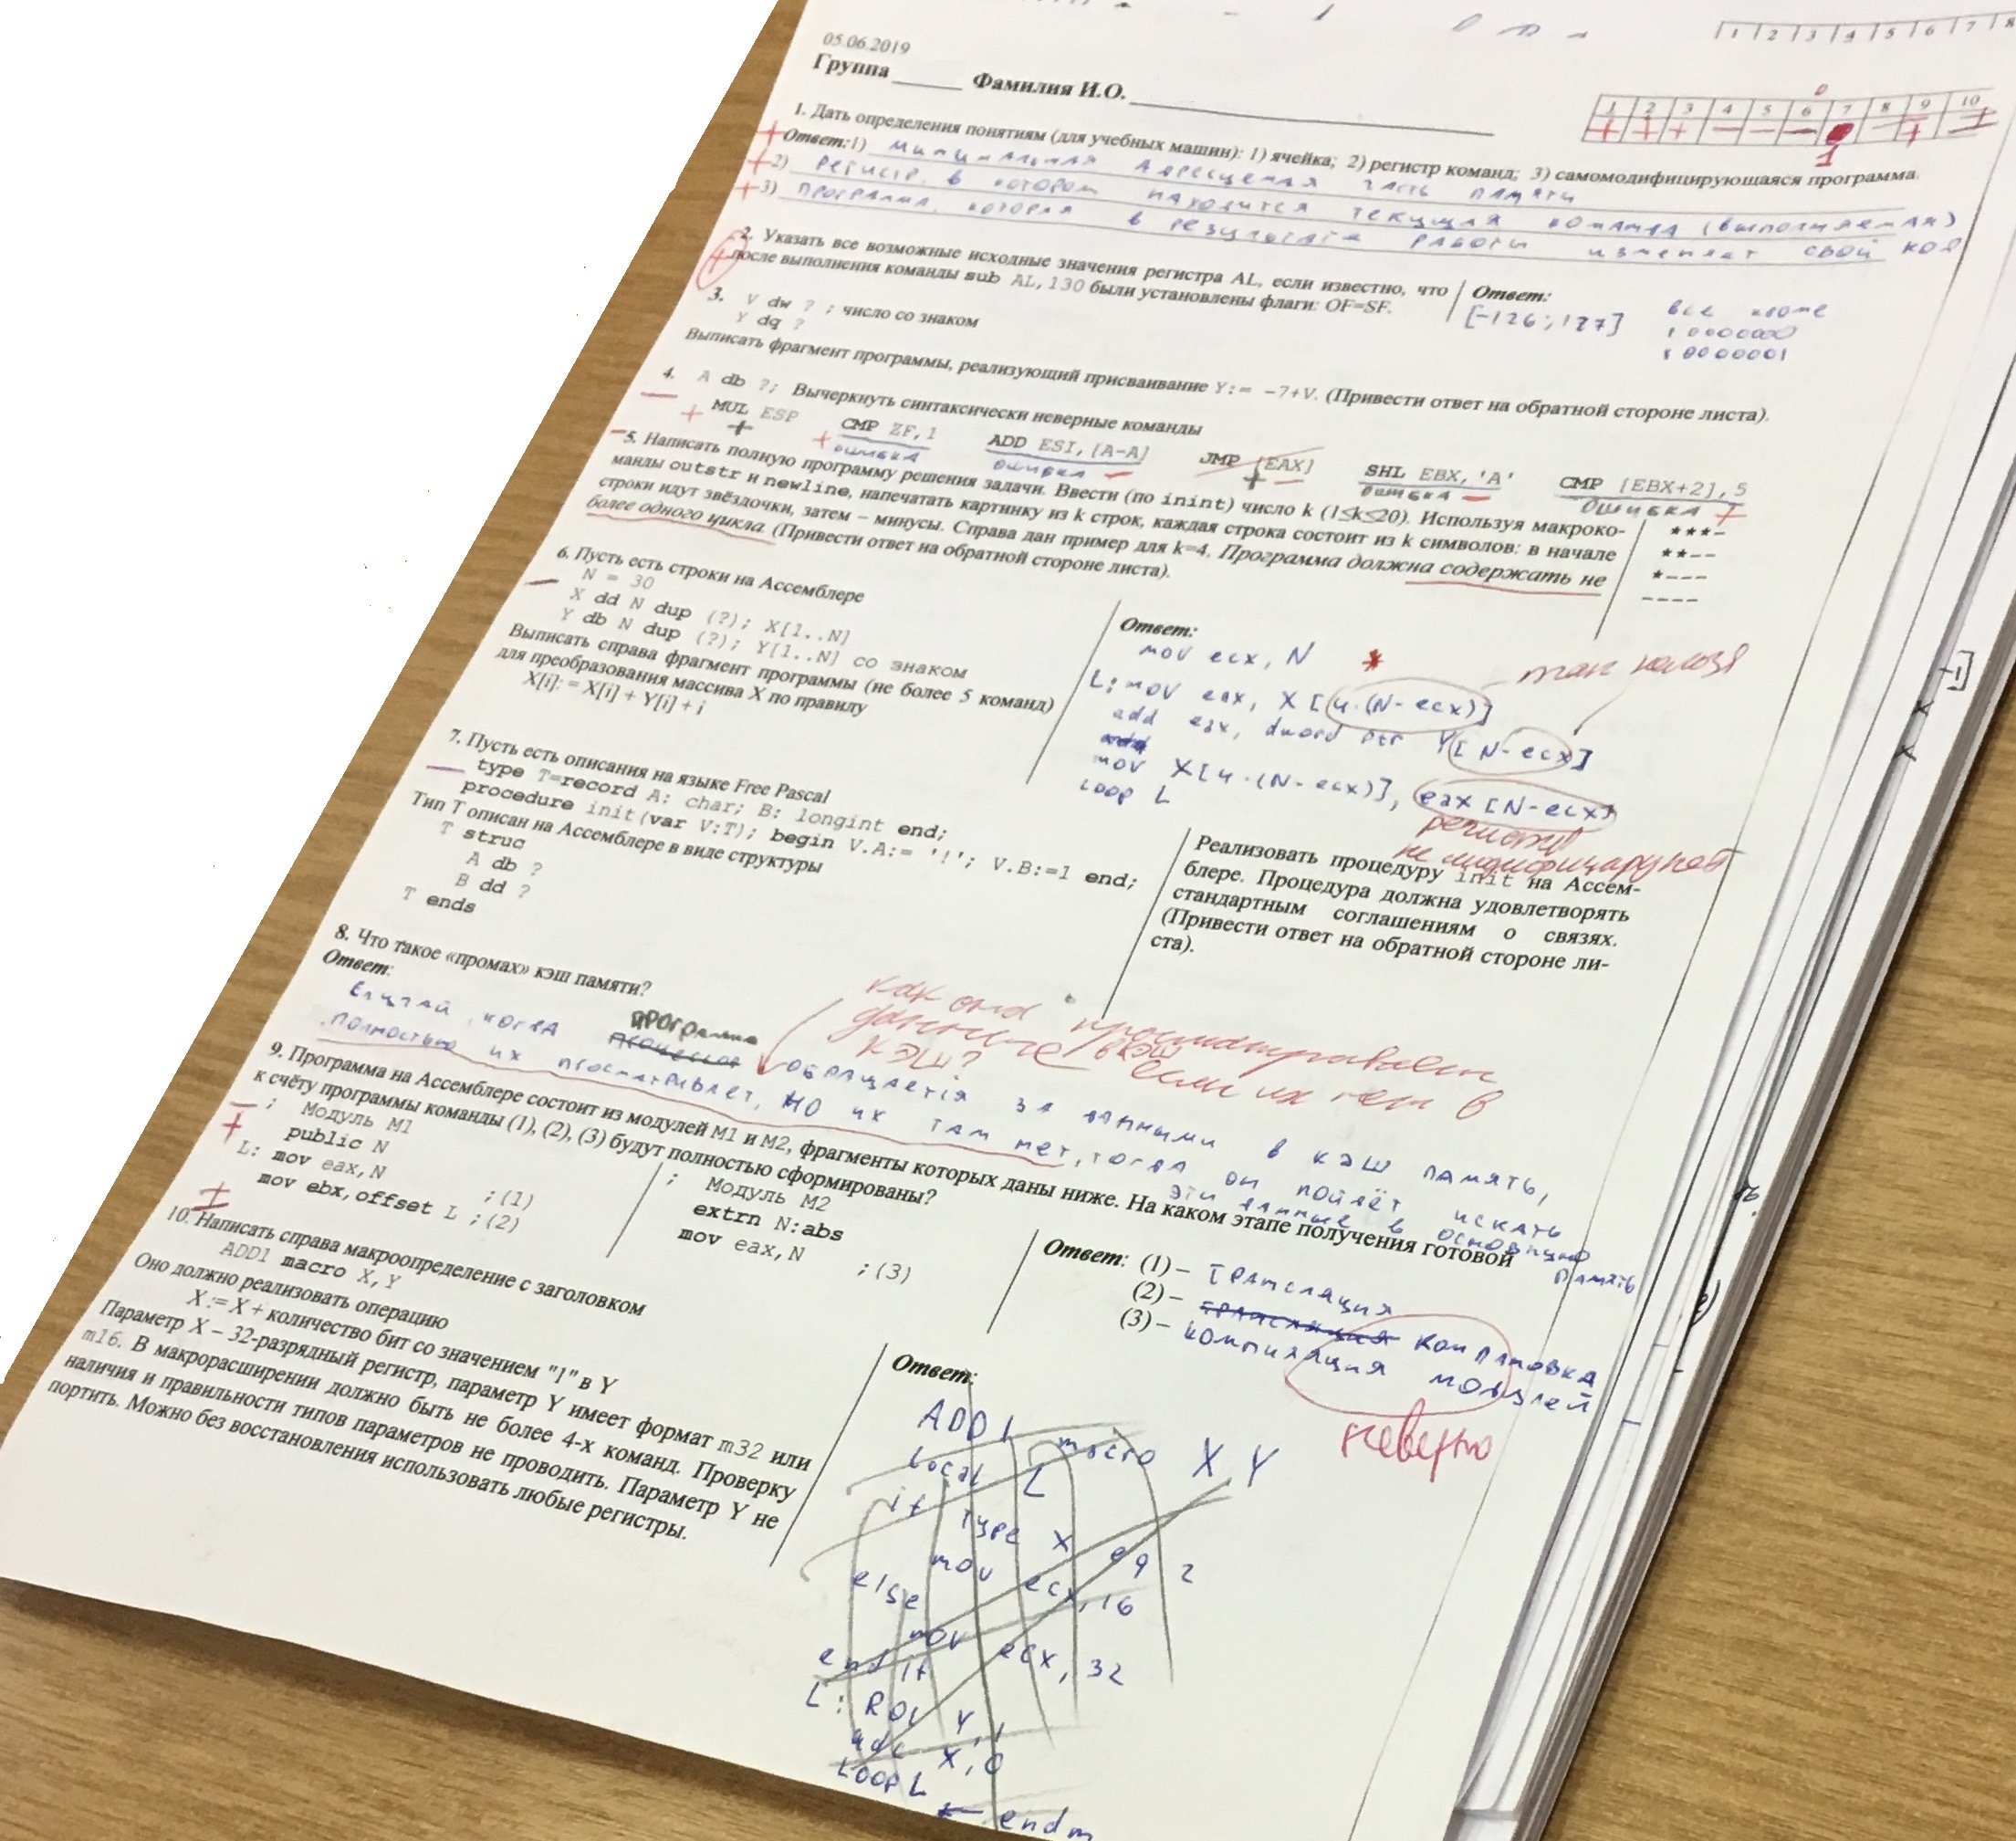 1 2 3 4 5 6 7 8
05.06.2019
Группа ______ Фамилия И.О. ______
1 2 3 4 5 6 7 8 9 10
+ + + — — — 1 — + ±
1. Дать определения понятиям (для учебных машин): 1) ячейка; 2) регистр команд; 3) самомодифицирующаяся программа.
+ Ответ: 1) минимальная адресуемая часть памяти
+ 2) Регистр, в котором находится текущая команда (выполняемая)
+ 3) программа, которая в результате работы изменяет свой код
2. Указать все возможные исходные значения регистра AL, если известно, что
+ после выполнения команды sub AL,130 были установлены флаги: OF=SF.
Ответ:
[-126; 127]
все кроме
10000000
10000001
3. V dw ? ; число со знаком
Y dq ?
Выписать фрагмент программы, реализующий присваивание Y:= -7+V. (Привести ответ на обратной стороне листа).
4. A db ?; Вычеркнуть синтаксически неверные команды
MUL ESP CMP ZF,1 ADD ESI,[A-A] JMP [EAX] SHL EBX,'A' CMP [EBX+2],5
+ ошибка ошибка + ошибка ошибка
5. Написать полную программу решения задачи. Ввести (по inint) число k (1≤k≤20). Используя макроко-
манды outstr и newline, напечатать картинку из k строк, каждая строка состоит из k символов: в начале
строки идут звёздочки, затем – минусы. Справа дан пример для k=4. Программа должна содержать не
более одного цикла. (Привести ответ на обратной стороне листа).
***-
**--
*---
----
6. Пусть есть строки на Ассемблере
N = 30
X dd N dup (?); X[1..N]
Y db N dup (?); Y[1..N] со знаком
Выписать справа фрагмент программы (не более 5 команд)
для преобразования массива X по правилу
X[i]:= X[i] + Y[i] + i
Ответ:
mov ecx, N *
так нельзя
L: mov eax, X[4·(N-ecx)]
add eax, dword ptr Y[N-ecx]
mov X[4·(N-ecx)], eax[N-ecx]
loop L
регистр
не модифицируют
7. Пусть есть описания на языке Free Pascal
type T=record A: char; B: longint end;
procedure init(var V:T); begin V.A:= '!'; V.B:=1 end;
Тип T описан на Ассемблере в виде структуры
T struc
A db ?
B dd ?
T ends
Реализовать процедуру init на Ассем-
блере. Процедура должна удовлетворять
стандартным соглашениям о связях.
(Привести ответ на обратной стороне ли-
ста).
8. Что такое «промах» кэш памяти?
Ответ:
как она просматривает
данные в кэш
если их нет в
кэш?
Случай, когда программа обращается за данными в кэш память,
полностью их просматривает, но их там нет, тогда он пойдёт искать
эти данные в основную
память
9. Программа на Ассемблере состоит из модулей M1 и M2, фрагменты которых даны ниже. На каком этапе получения готовой
к счёту программы команды (1), (2), (3) будут полностью сформированы?
; Модуль M1
public N
L: mov eax,N ;(1)
mov ebx,offset L ;(2)
; Модуль M2
extrn N:abs
mov eax,N ;(3)
Ответ: (1) – трансляция
(2) – трансляция компановка
(3) – компиляция модулей
неверно
10. Написать справа макроопределение с заголовком
ADD1 macro X,Y
Оно должно реализовать операцию
X:= X + количество бит со значением "1" в Y
Параметр X – 32-разрядный регистр, параметр Y имеет формат m32 или
m16. В макрорасширении должно быть не более 4-х команд. Проверку
наличия и правильности типов параметров не проводить. Параметр Y не
портить. Можно без восстановления использовать любые регистры.
Ответ:
ADD1 macro X Y
local L
if type X eq 2
mov ecx, 16
else
mov ecx, 32
endif
L: ROL Y, 1
adc X, 0
loop L
endm